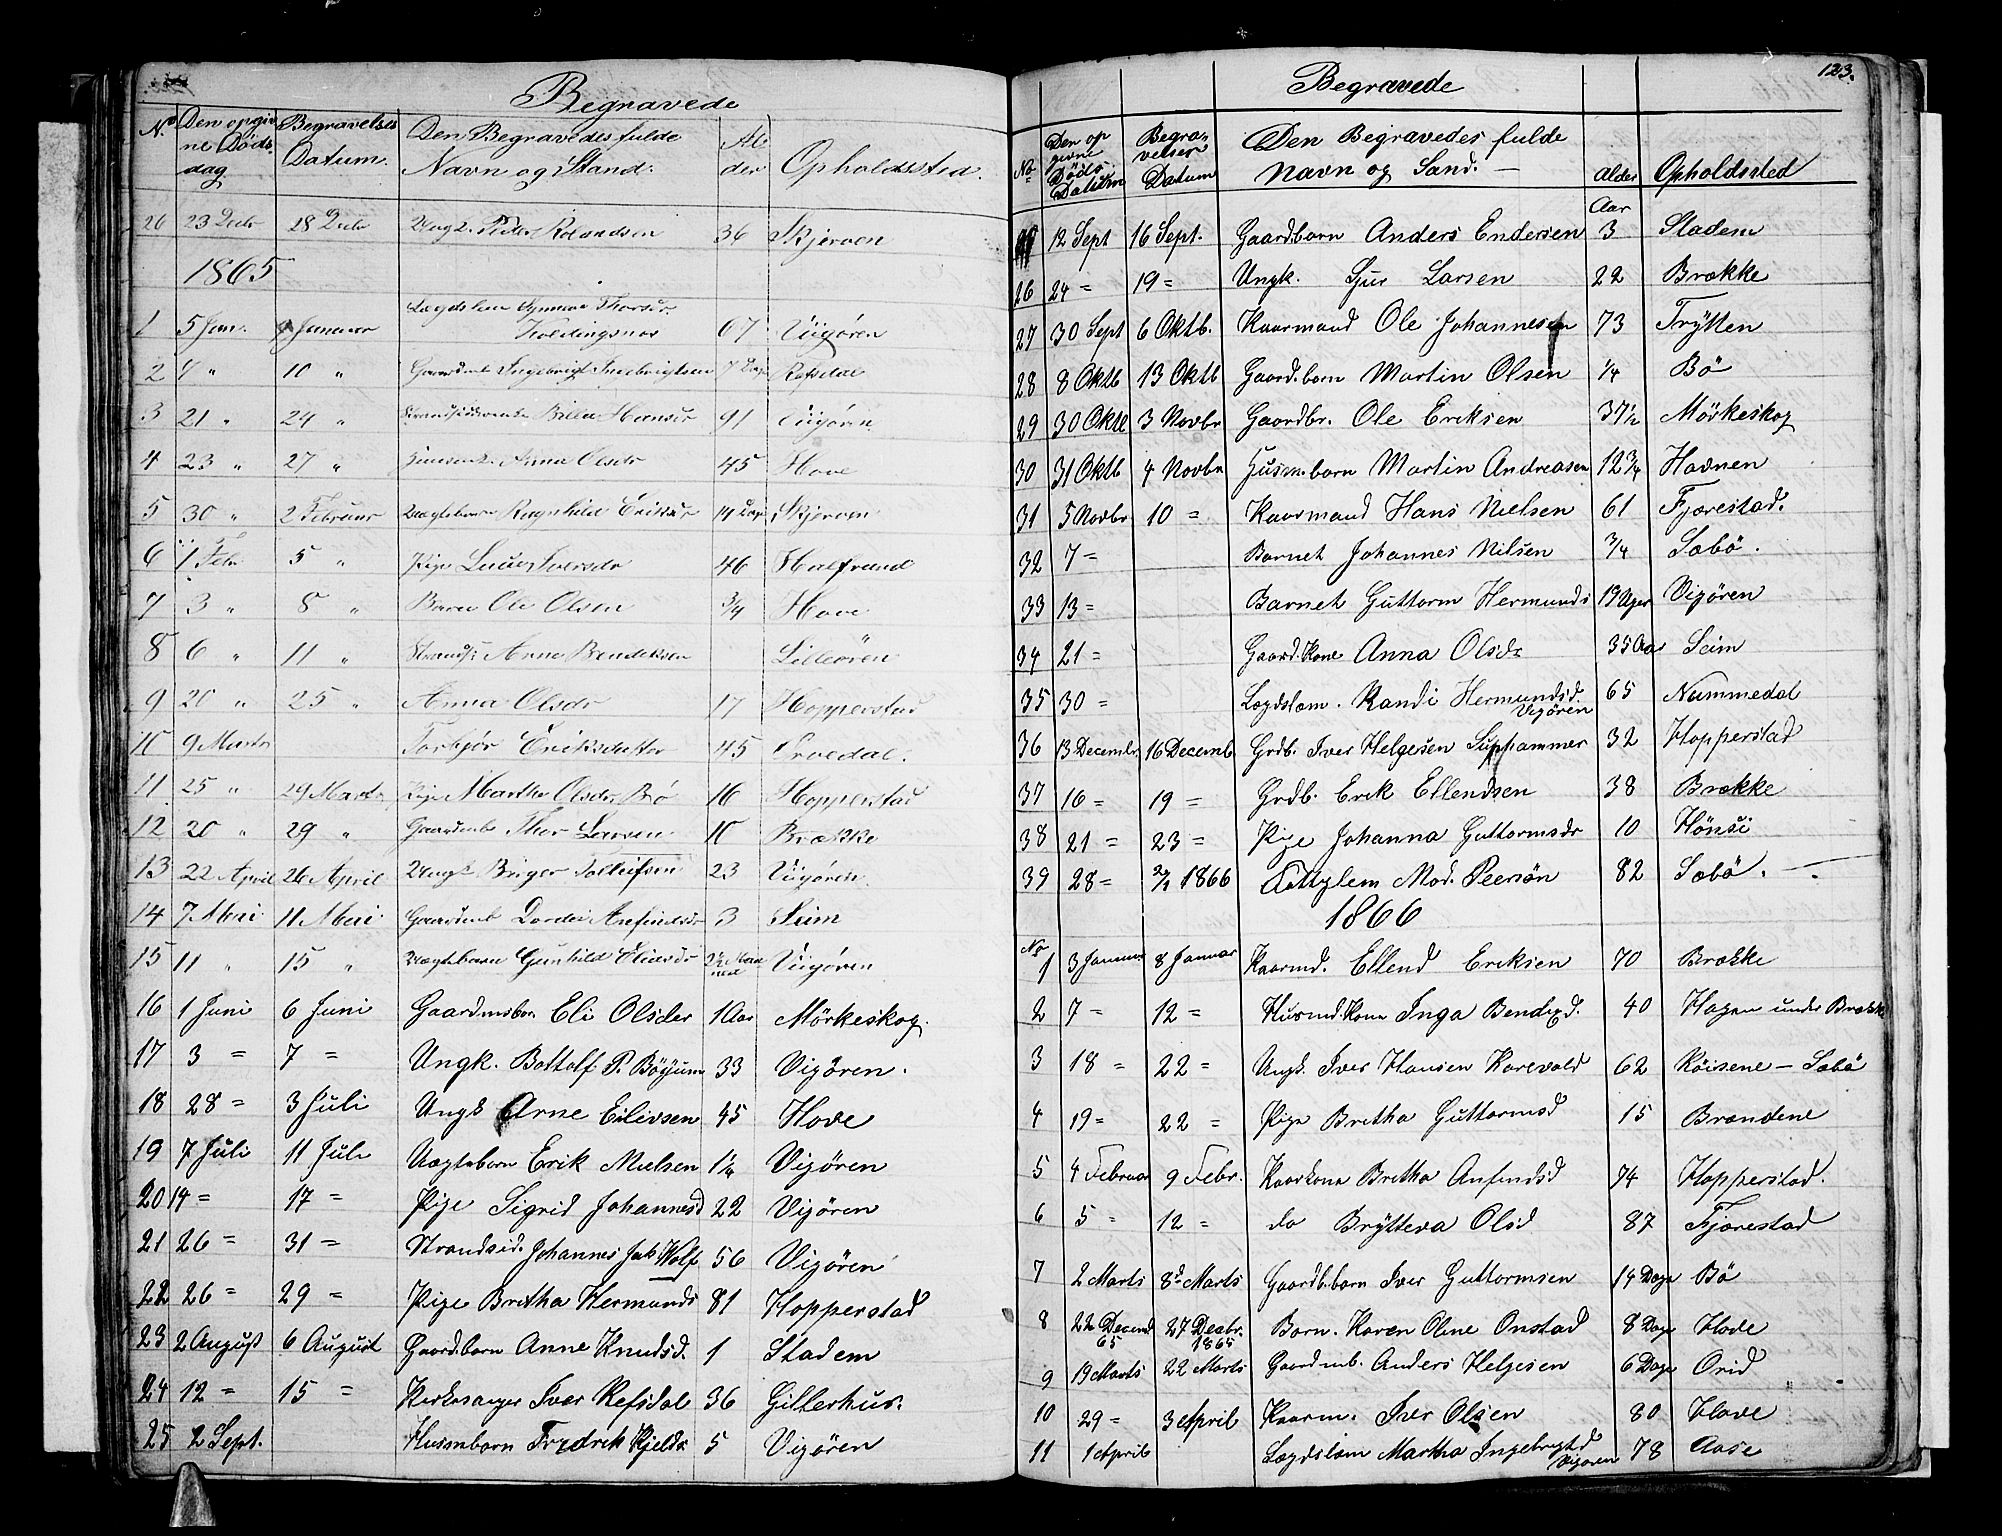 Begravede
No Den opgivne Dødsdag Begravelses Datum. Den Begravedes fulde Navn og Stand. Alder Opholdssted.
26 23 Decbr 28 Decbr Ungk. Peder Rolandsen 36 Skjerven
1865
1 5 Jan. 9 Januar Lægdslem Synneve Thorsdr Koldingsnæs 67 Viigören
2 4 " 10 " Gaardmb Ingebrigt Ingebrigtsen 7 Dag Refsdal
3 21 " 24 " Strandsidderenke Britha Hansdr 91 Viigören
4 23 " 27 " Anna Olsdr 45 Hove
5 30 " 2 Februar Uægtebarn Ragnhild Eriksdr 14 Dag Skjerven
6 1 Febr 5 " Pige Iversdr 46 Halfrand
7 3 " 8 " Barn Ole Olsen 3/4 Hove
8 6 " 11 " Strands. Arne Bendiksen Lilleören
9 20 " 25 " Anna Olsdr 17 Hopperstad
10 9 Marts Torbjör Eriksdatter 45
11 25 " 29 Marts Pige Martha Olsdr Bö 16 Hopperstad
12 20 " 29 " Gaardmb Thor Larsen 10 Brække
13 22 April 26 April Ungk. Birger Tollefsen 23 Viigören
14 7 Mai 11 Mai Gaardmb Dordei Anfindsdr 3 Seim
15 11 " 15 " Uægtebarn Gunhild Eliasdr 2½ Maaned Viigören
16 1 Juni 6 Juni Gaardmsbrn Eli Olsder 1 Aar Mörkeskog.
17 3 = 7 = Ungk. Bottolf P. Böyum 33 Vigören.
18 28 = 3 Juli Ungk Arne Eilivsen 45 Hove
19 7 Juli 11 Juli Uægtebarn Erik Nielsen 1¼ Vigören
20 14 = 17 = Pige Sigrid Johannesd 22 Vigören
21 26 = 31 = Strandsid. Johannes Jak Wolf 56 Vigören
22 26 = 29 = Pige Britha Hermunds 81 Hopperstad
23 2 August 6 August Gaard.barn Anne Knudsd. 1 Stadem
24 12 = 15 = Kirkesanger Iver Refsdal 36 Gillerhus.
25 2 Sept. Husmbarn Fredrik Kjelds 5 Vigören
Begravede
123.
No Den opgivne Døds Datum Begravelsers Datum Den Begravedes fulde Navn og Sand. – Alder Opholdssted
Aar
12 Sept 16 Sept. Gaardbarn Anders Endersen 3 Stadem
26 24 = 19 = Ungk. Sjur Larsen 22 Brække
27 30 Sept 6 Oktb. Kaarmand Ole Johannesen 73 Trÿtten
28 8 Oktb 13 Oktb Gaard.barn Martin Olsen ¼ Bö
29 30 Oktb 3 Novbr Gaardbr. Ole Eriksen 37½ Mörkeskog
30 31 Oktb 4 Novbr Husm.barn Martin Andreasen 12¾ Havnen
31 5 Novbr 10 = Kaarmand Hans Nielsen 61 Fjærestad.
32 7 = Barnet Johannes Nilsen ¾ Sæbö.
33 13 = Barnet Guttorm Hermunds 19 Uger Vigören
34 21 = Gaard.Kone Anna Olsdr 35 Aar Seim
35 30 = Lægdslam. Randi Hermundsd. Vigören 65 Nummedal
36 13 Decembr. 16 Decemb Grdb. Iver Helgesen Suphammer 32 Hopperstad
37 16 = 19 = Grdb. Erik Ellendsen 38 Brække
38 21 = 23 = Pige Johanna Guttormsdr 10 Hönsi
39 28 = 2/1 1866 Fattglem Mad. Peersön 82 Sæbö.
1866
No
1 3 Januar 8 Januar Kaarmd. Ellend Eriksen 70 Brække
2 7 = 12 = Husmd.Kone Inga Bendixd. 40 Hagen under Brække
3 18 = 22 = Ungk. Iver Hansen Korevald 62 Röisene – Sæbö
4 19 = 22 = Pige Britha Guttormsd 15 Brændene
5 4 Februar 9 Febr. Kaarkona Britha Anfindsd 74 Hopperstad.
6 5 = 12 = do Brÿtteva Olsd 87 Fjærestad
7 2 Marts 8d Marts Gaardb.barn Iver Guttormsen 14 Dage Bö
8 22 Decemb 65 27 Decbr. 1865 Barn. Karen Oline Onstad 8 Dage Hove
9 19 Marts 22 Marts Gaardmb. Anders Helgesen 6 Dage Orid
10 29 = 3 April Kaarm. Iver Olsen 80 Hove
11 1 April Lægdslam Martha Ingebrigtd Vigören 78 Aase